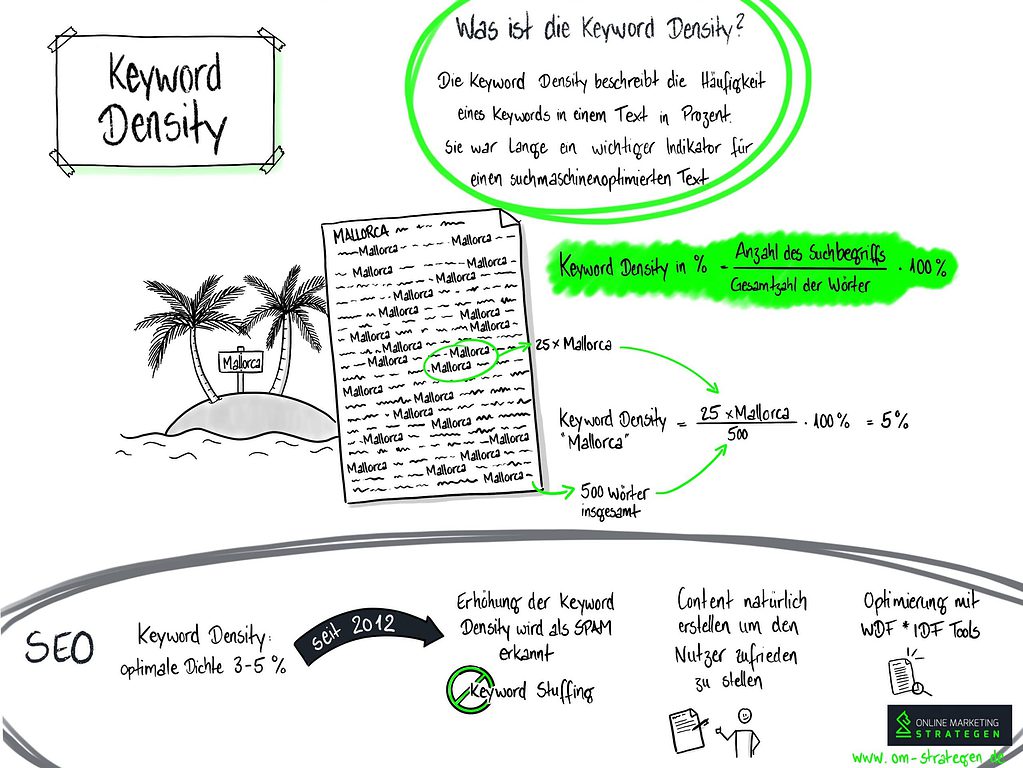 Keyword
Density
Was ist die Keyword Density?
Die Keyword Density beschreibt die Häufigkeit
eines Keywords in einem Text in Prozent.
Sie war Lange ein wichtiger Indikator für
einen suchmaschinenoptimierten Text
MALLORCA
Mallorca Mallorca
Mallorca Mallorca
Mallorca
Mallorca
Mallorca
Mallorca
Mallorca
Mallorca
Mallorca
Mallorca
Mallorca
Mallorca
Mallorca
Mallorca
Mallorca
Mallorca Mallorca
Mallorca
Mallorca
Mallorca
Mallorca
Mallorca
Keyword Density in % = Anzahl des Suchbegriffs
Gesamtzahl der Wörter · 100%
25 x Mallorca
Keyword Density
"Mallorca"
= 25 x Mallorca
500
· 100% = 5%
500 Wörter
insgesamt
SEO
Keyword Density:
optimale Dichte 3-5 %
seit 2012
Erhöhung der Keyword
Density wird als SPAM
erkannt
Keyword Stuffing
Content natürlich
erstellen um den
Nutzer zufrieden
zu stellen
Optimierung mit
WDF * IDF Tools
ONLINE MARKETING
STRATEGEN
www.om-strategen.de